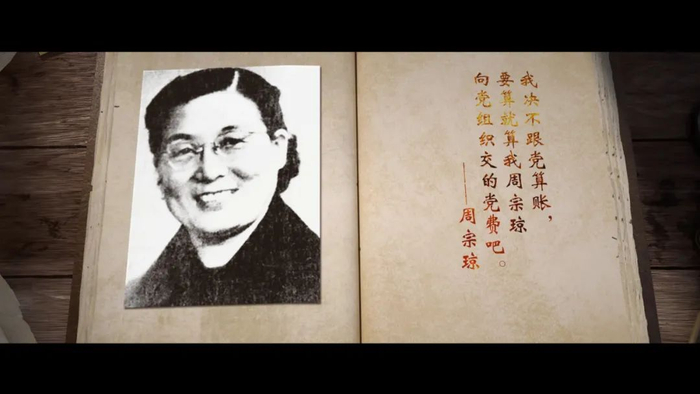 我决不跟党算账，
要算就算我周宗琼
向党组织交的党费吧。
——周宗琼